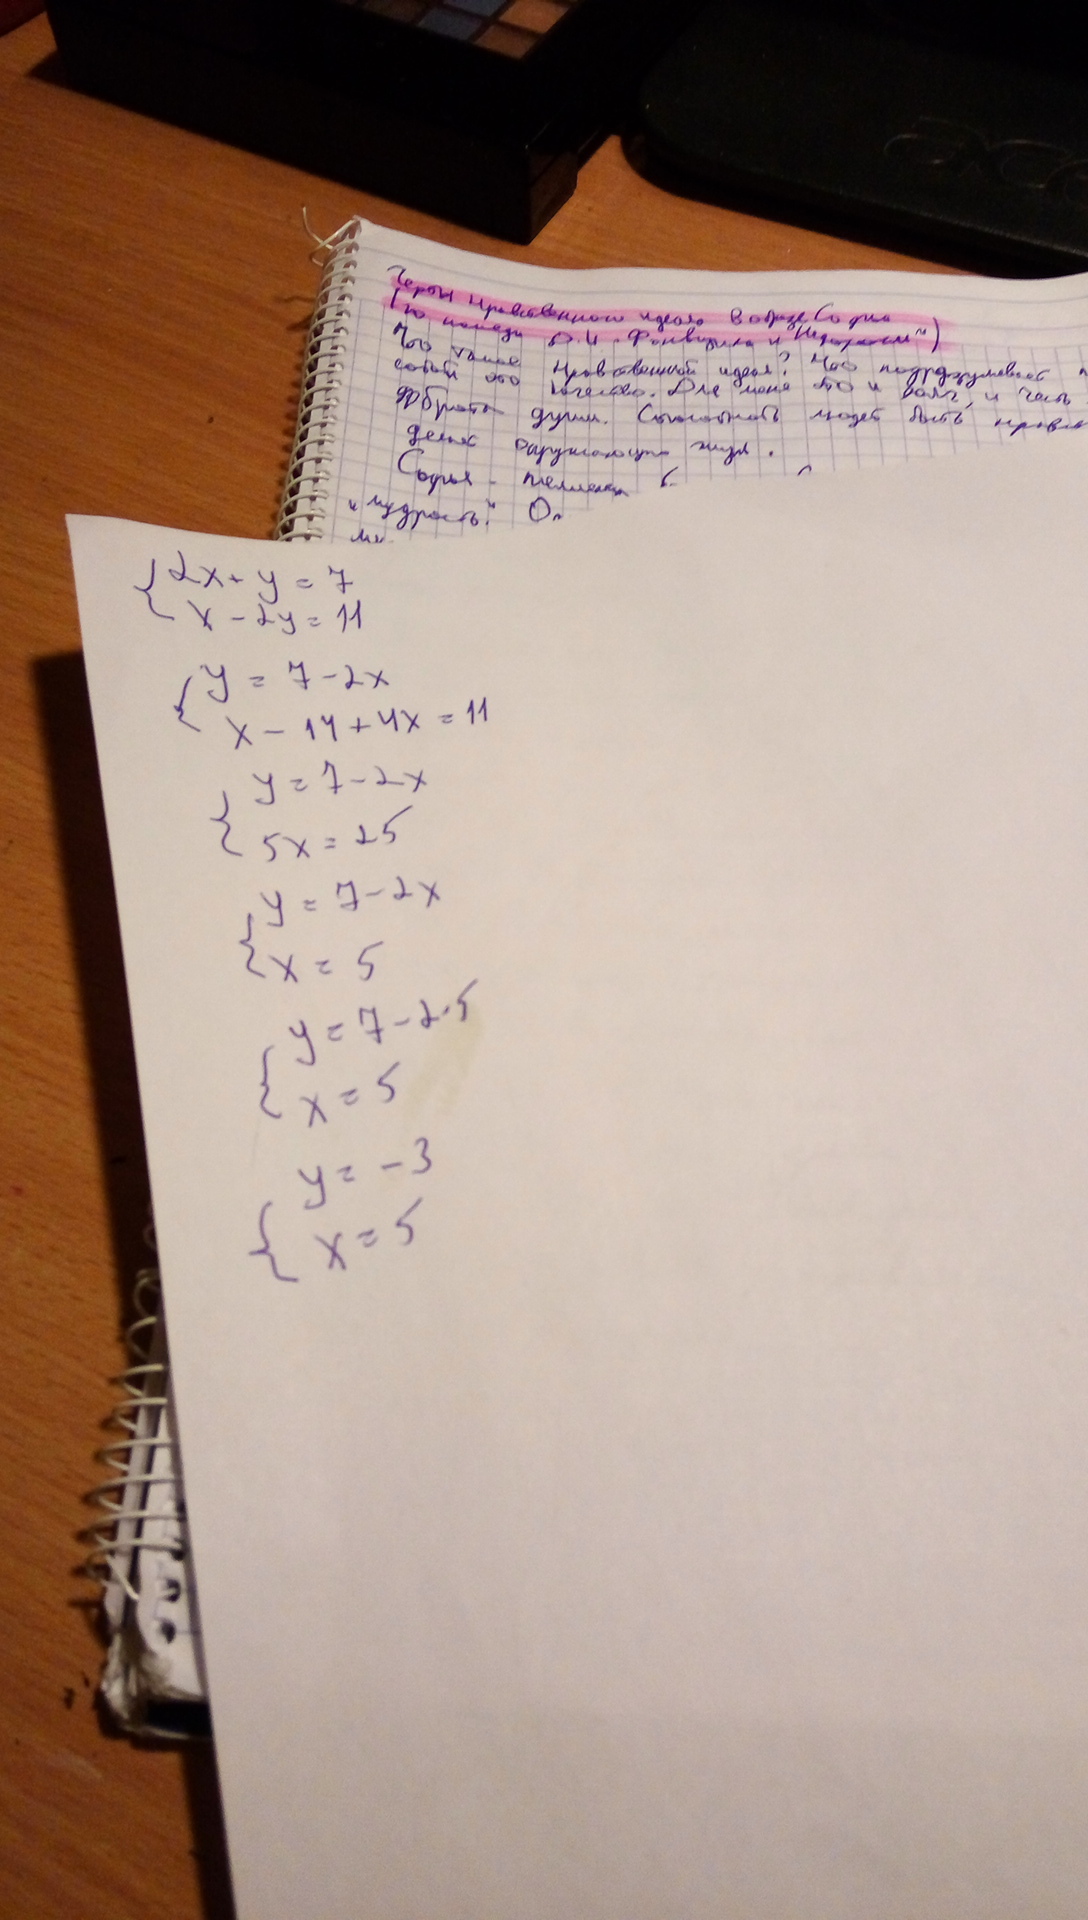 acer
Черты нравственного идеала в образе Софьи
(по комедии Д.И. Фонвизина "Недоросль")
Что такое нравственный идеал? Что подразумевает
собой это качество. Для меня это и долг, и честь
доброта души. Способность людей быть
делах окружающую
Софья -
"мудрость".
2x + y = 7
x - 2y = 11
y = 7 - 2x
x - 14 + 4x = 11
y = 7 - 2x
5x = 25
y = 7 - 2x
x = 5
y = 7 - 2·5
x = 5
y = -3
x = 5